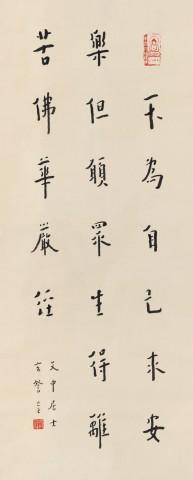 不為自己求安
樂但願眾生得離
苦佛華嚴經
文中居士